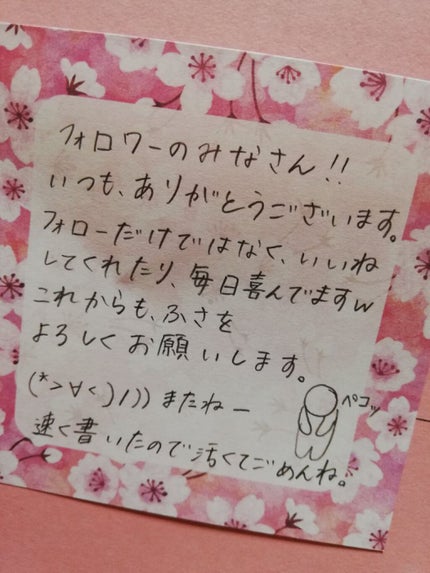 フォロワーのみなさん!!
いつも、ありがとうございます。
フォローだけではなく、いいね
してくれたり、毎日喜んでますw
これからも、ふさを
よろしくお願いします。
(*>∀<)ノ))またねー
ペコッ
速く書いたので汚くてごめんね。